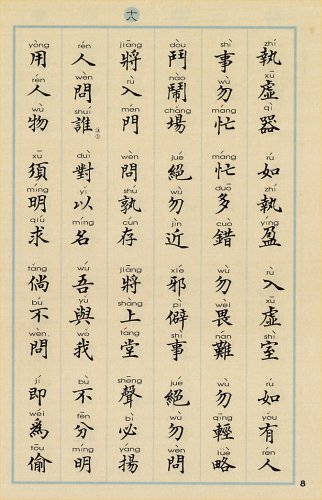 十八
zhí xū qì rú zhí yíng rù xū shì rú yǒu rén
執虛器 如執盈 入虛室 如有人
shì wù máng máng duō cuò wù wèi nán wù qīng lüè
事勿忙 忙多錯 勿畏難 勿輕略
dòu nào chǎng jué wù jìn xié pì shì jué wù wèn
鬥鬧場 絕勿近 邪僻事 絕勿問
jiāng rù mén wèn shú cún jiāng shàng táng shēng bì yáng
將入門 問孰存 將上堂 聲必揚
rén wèn shuí duì yǐ míng wú yǔ wǒ bù fēn míng
人問誰 對以名 吾與我 不分明
yòng rén wù xū míng qiú tǎng bú wèn jí wéi tōu
用人物 須明求 倘不問 即為偷
8